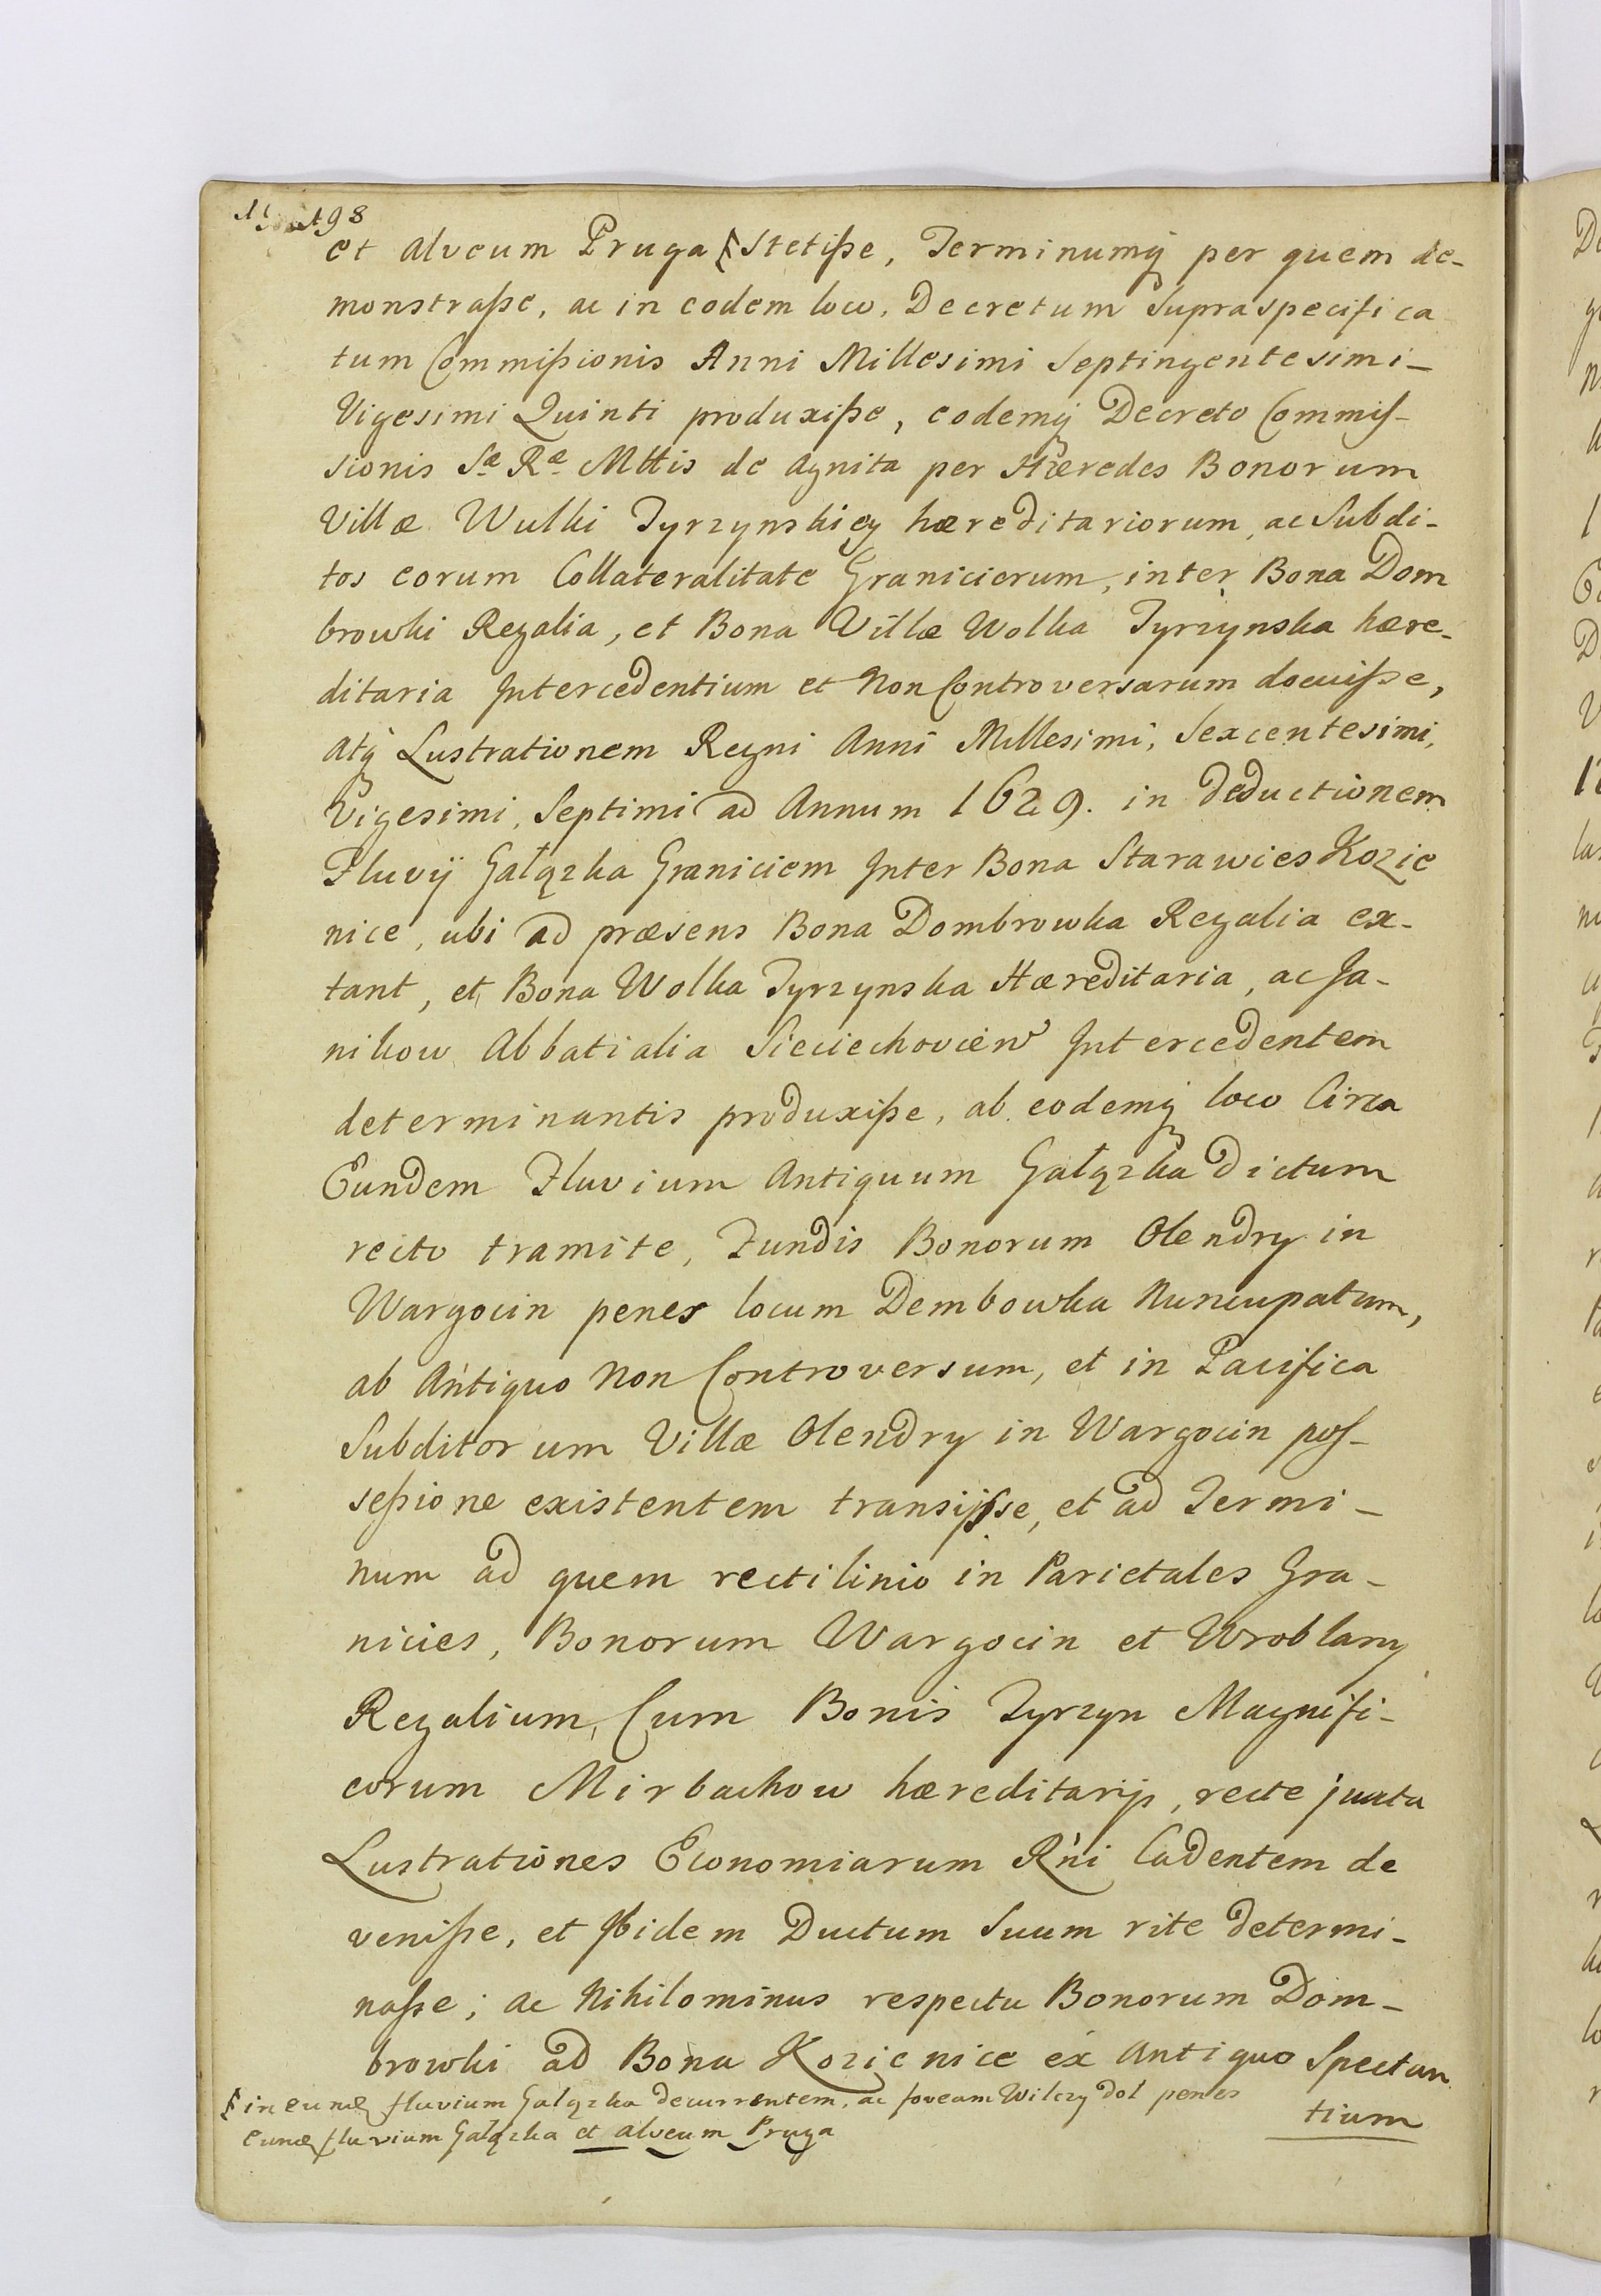 198
et alveum Pruga stetisse, Terminumq per quem de-
monstrasse, ac in eodem loco, Decretum supraspecifica
tum Commissionis Anni Millesimi Septingentesimi-
Vigesimi Quinti produxisse, eodemq Decreto Commis-
sionis Sæ Ræ Mttis de agnita per Hæredes Bonorum
Villæ Wulki Tyrzynskiey hæreditariorum, ac Subdi-
tos eorum Collateralitate Granicierum, inter Bona Dom
browki Regalia, et Bona Villæ Wolka Tyrzynska hære-
ditaria Intercedentium et Non Controversarum docuisse,
atq Lustrationem Regni Anni Millesimi, Sexcentesimi,
Vigesimi, Septimi ad Annum 1629. in deductionem
Fluvij Gałązka Graniciem Inter Bona Starawies Kozie
nice, ubi ad præsens Bona Dombrowka Regalia ex-
tant, et Bona Wolka Tyrzynska Hæreditaria, ac Ja-
nikow Abbatialia Sieciechovien Intercedentem
determinantis produxisse, ab eodemq loco Circa
Eundem Fluvium Antiquum Gałązka dictum
recto tramite, Fundis Bonorum Olendry in
Wargocin penes locum Dembowka Nuncupatum,
ab Antiquo Non Controversum, et in Pacifica
Subditorum Villæ Olendry in Wargocin pos-
sessione existentem transijsse, et ad Termi-
num ad quem rectilinio in Parietales Gra-
nicies, Bonorum Wargocin et Wroblany
Regalium, Cum Bonis Tyrzyn Magnifi-
corum Mirbachow hæreditarijs, recte juxta
Lustrationes Economiarum R'ni Cadentem de
venisse, et Ibidem Ductum Suum rite determi-
nasse; ac Nihilominus respectu Bonorum Dom-
browki ad Bona Kozienice ex Antiquo Spectan
tium
in eund fluvium Gałązka decurrentem, ac foveam Wilczy dol penes
eund fluvium Gałązka et alveum Pruga